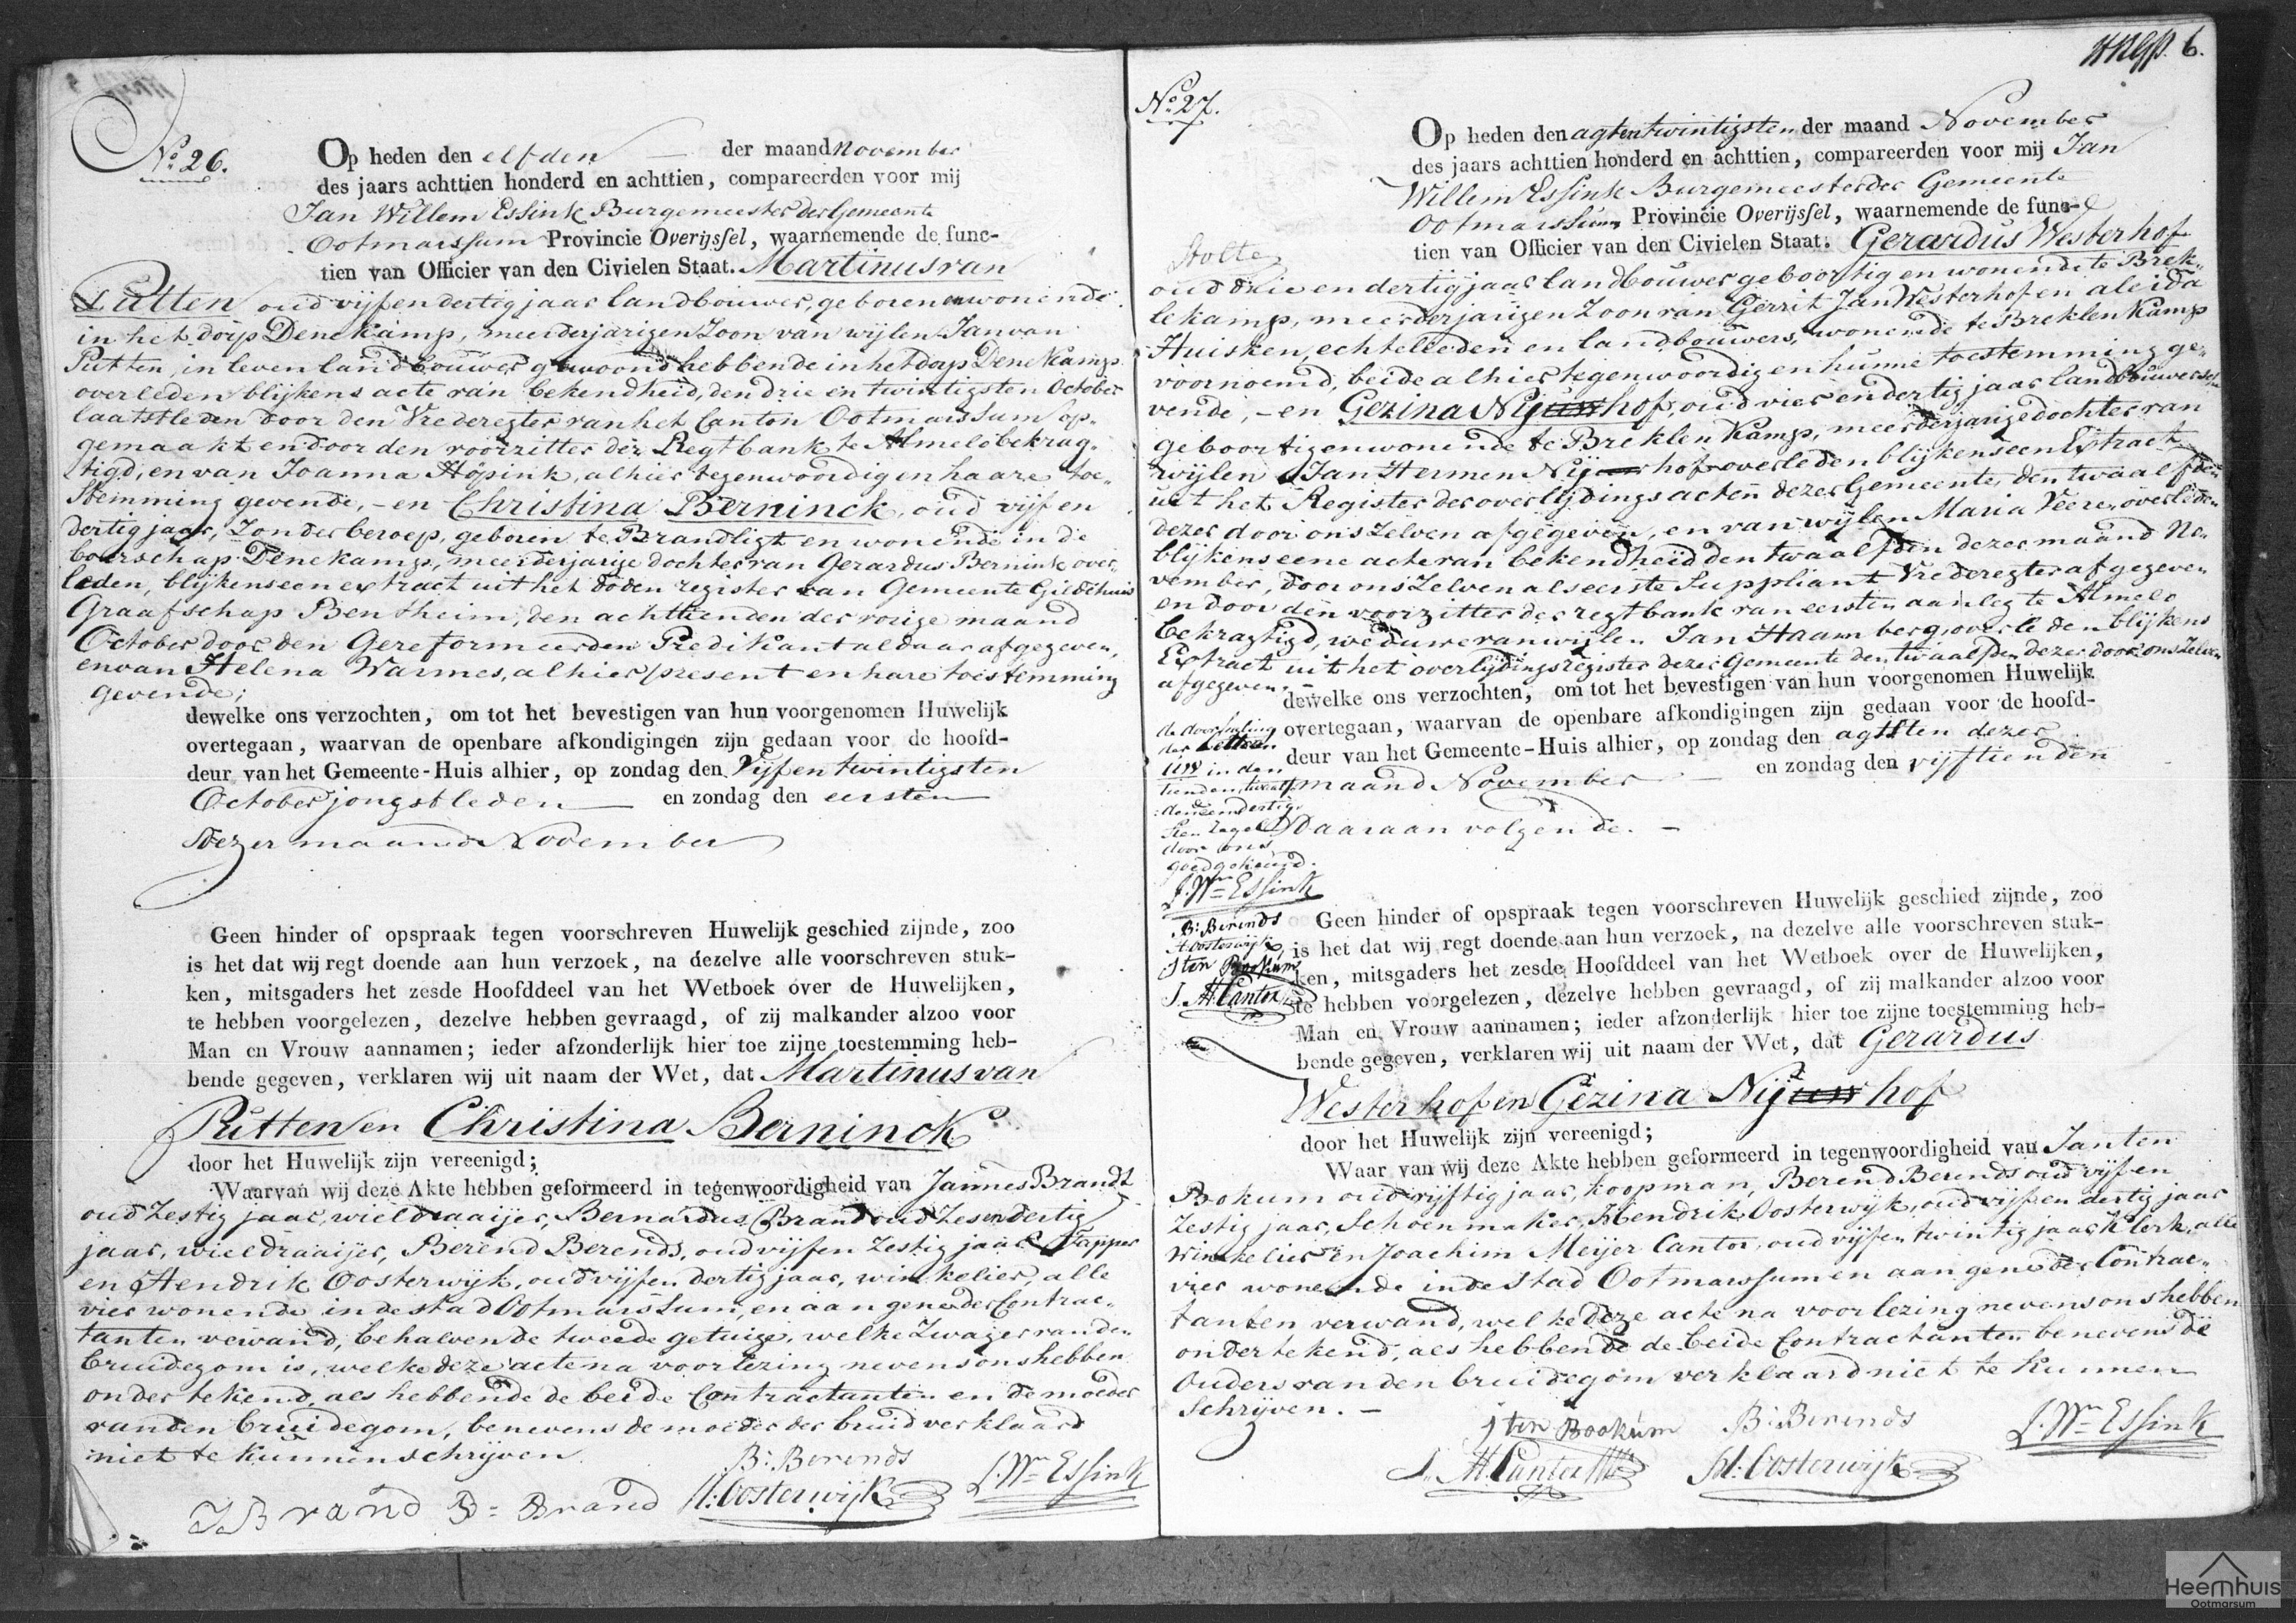 No 26.
Op heden den elfden der maand November
des jaars achttien honderd en achttien, compareerden voor mij
Jan Willem Essink Burgemeester der Gemeente
Ootmarssum Provincie Overijssel, waarnemende de func-
tien van Officier van den Civielen Staat. Martinus van
Putten oud vijf en dertig jaar landbouwer, geboren en wonende
in het dorp Denekamp, meerderjarigen Zoon van wijlen Jan van
Putten, in leven landbouwer gewoond hebbende in het dorp Denekamp
overleden blijkens acte van bekendheid, den drie en twintigsten October
laatstleden door den Vrederegter van het Canton Ootmarssum op-
gemaakt en door den voorzitter der Regtbank te Almelo bekrag-
tigd, en van Joanna Höpink, alhier tegenwoordig en haare toe-
stemming gevende, - en Christina Berninck, oud vijf en
dertig jaar, Zonder beroep, geboren te Brandligt en wonende in de
boerschap Denekamp, meerderjarige dochter van Gerardus Bernink over-
leden, blijkens een extract uit het doden register van Gemeente Gildehuis
Graafschap Bentheim, den achttienden der vorige maand
October door den Gereformeerden Predikant aldaar afgegeven,
en van Helena Warmes, alhier present en hare toestemming
gevende;
dewelke ons verzochten, om tot het bevestigen van hun voorgenomen Huwelijk
overtegaan, waarvan de openbare afkondigingen zijn gedaan voor de hoofd-
deur van het Gemeente-Huis alhier, op zondag den Vijf en twintigsten
October jongstleden en zondag den eersten
dezer maand November
Geen hinder of opspraak tegen voorschreven Huwelijk geschied zijnde, zoo
is het dat wij regt doende aan hun verzoek, na dezelve alle voorschreven stuk-
ken, mitsgaders het zesde Hoofddeel van het Wetboek over de Huwelijken,
te hebben voorgelezen, dezelve hebben gevraagd, of zij malkander alzoo voor
Man en Vrouw aannamen; ieder afzonderlijk hier toe zijne toestemming heb-
bende gegeven, verklaren wij uit naam der Wet, dat Martinus van
Putten en Christina Berninck
door het Huwelijk zijn vereenigd;
Waarvan wij deze Akte hebben geformeerd in tegenwoordigheid van Jannes Brandt
oud Zestig jaar, wieldraaijer, Bernardus Brand oud Zes en dertig
jaar, wieldraaijer, Berend Berends, oud vijf en Zestig jaar Tapper
en Hendrik Oosterwijk, oud vijf en dertig jaar, winkelier, alle
vier wonende in de stad Ootmarssum, en aan gene der Contrac-
tanten verwand, behalven de tweede getuige, welke Zwager van den
bruidegom is, welke deze acte na voorlezing nevens ons hebben
ondertekend, aes hebbende de beide Contractanten en de moeder
van den bruidegom, benevens de moeder der bruid verklaard
niet te kunnen schrijven
B: Berends
J Brand B= Brand H: Oosterwijk J. Wm Essink
6.
No 27.
Op heden den agtentwintigsten der maand November
des jaars achttien honderd en achttien, compareerden voor mij Jan
Willem Essink Burgemeester der Gemeente
Ootmarssum Provincie Overijssel, waarnemende de func-
tien van Officier van den Civielen Staat. Gerardus Westerhof
Stolte
oud drie en dertig jaar landbouwer geboortig en wonende te Brek-
lekamp, meerderjarigen Zoon van Gerrit Jan Westerhof en aleida
Huisken, echtelieden en landbouwers, wonende te Breklenkamp
voornoemd, beide alhier tegenwoordig en hunne toestemming ge-
vende, - en Gezina Nijeuwhof, oud vier en dertig jaar landbouwersche
geboortig en wonende te Breklenkamp, meerderjarige dochter van
wijlen Jan Hermen Nijhof overleden blijkens een Extract
uit het Register der overlijdings acten dezer Gemeente, den twaalfden
dezer door ons Zelven afgegeven, en van wijlen Maria Veere, overleden
blijkens eene acte van bekendheid den twaalfden dezer maand No-
vember, door ons Zelven als eerste Suppliant Vrederegter afgegeven
en door den voorzitter der regtbank van eersten aanleg te Almelo
bekragtigd, weduwe van wijlen Jan Haambergoverleden blijkens
Extract uit het overlijdingsregister dezer Gemeente den twaalfden dezer door ons Zelven
afgegeven.
dewelke ons verzochten, om tot het bevestigen van hun voorgenomen Huwelijk
overtegaan, waarvan de openbare afkondigingen zijn gedaan voor de hoofd-
deur van het Gemeente-Huis alhier, op zondag den agtsten dezer
maand November en zondag den vijftienden
Daaraan volgende. -
de doorhaling
der letteren
uw in den
tienden, twaalf
den en dertig
sten regel
door ons
goedgekeurd.
J. Wm Essink
B: Berends
H Oosterwijk
J ten Bookum
J. M. Cantor
Geen hinder of opspraak tegen voorschreven Huwelijk geschied zijnde, zoo
is het dat wij regt doende aan hun verzoek, na dezelve alle voorschreven stuk-
ken, mitsgaders het zesde Hoofddeel van het Wetboek over de Huwelijken,
te hebben voorgelezen, dezelve hebben gevraagd, of zij malkander alzoo voor
Man en Vrouw aannamen; ieder afzonderlijk hier toe zijne toestemming heb-
bende gegeven, verklaren wij uit naam der Wet, dat Gerardus
Westerhof en Gezina Nijeuwhof
door het Huwelijk zijn vereenigd;
Waar van wij deze Akte hebben geformeerd in tegenwoordigheid van Jan ten
Bokum oud vijftig jaar, koopman, Berend Berends oud vijf en
Zestig jaar, Schoenmaker, Hendrik Oosterwijk, oud vijf en dertig jaar
Winkelier en Joachim Meijer Cantor, oud vijf en twintig jaar klerk, alle
vier wonende in de stad Ootmarssum en aan gene der Contrac-
tanten verwand, welke deze acte na voorlezing nevens ons hebben
ondertekend, aes hebbende de beide Contractanten benevens de
Ouders van den bruidegom verklaard niet te kunnen
Schrijven. -
J ten Bookum B: Berends J. Wm Essink
J. M. Cantor H: Oosterwijk
Heemhuis
Ootmarsum